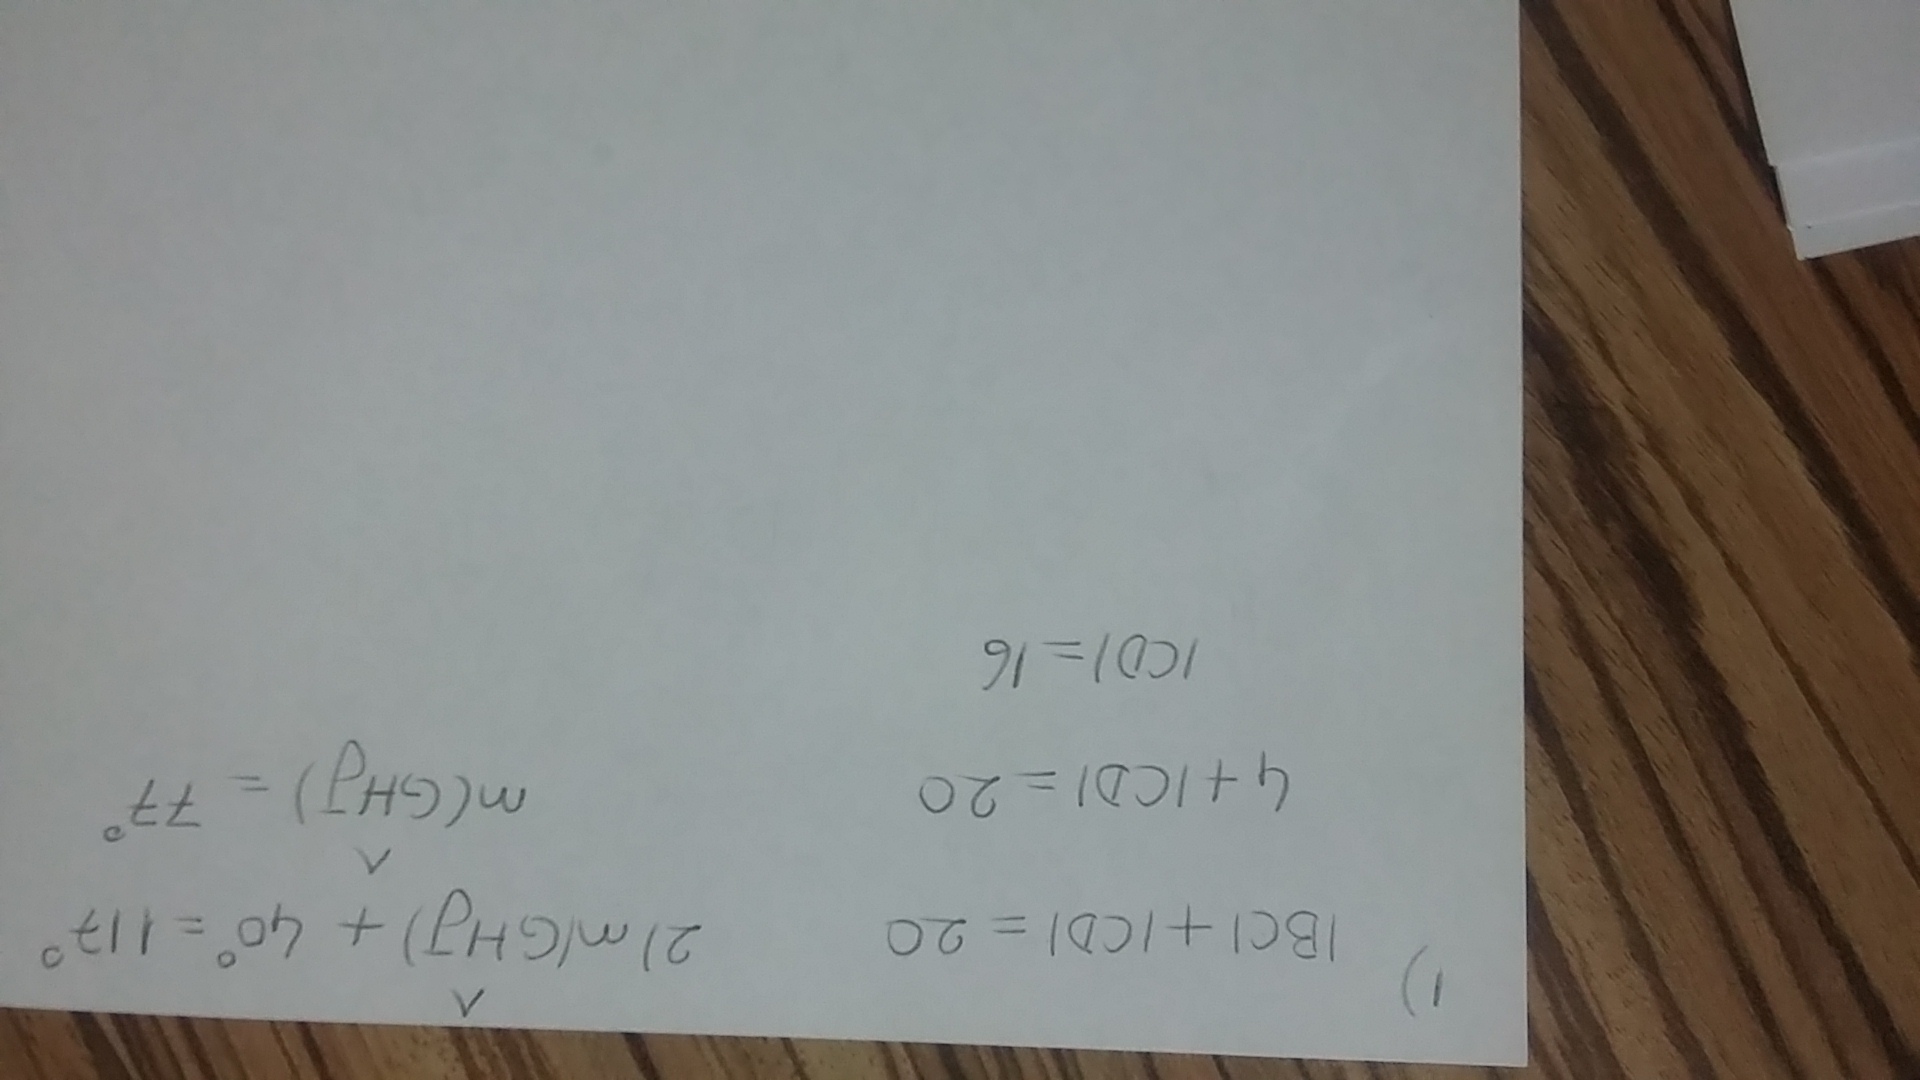 1)
|BC| + |CD| = 20
4 + |CD| = 20
|CD| = 16
2) m(GĤJ) + 40° = 117°
m(GĤJ) = 77°